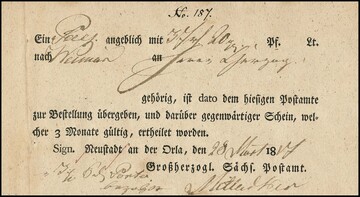 No. 187.
Ein Paq. angeblich mit Pf. Lt.
nach Weimar an Herrn Herzog
gehörig, ist dato dem hiesigen Postamte
zur Bestellung übergeben, und darüber gegenwärtiger Schein, wel-
cher 3 Monate gültig, ertheilet worden.
Sign. Neustadt an der Orla, den 28 181
Großherzogl. Sächs. Postamt.
Porto